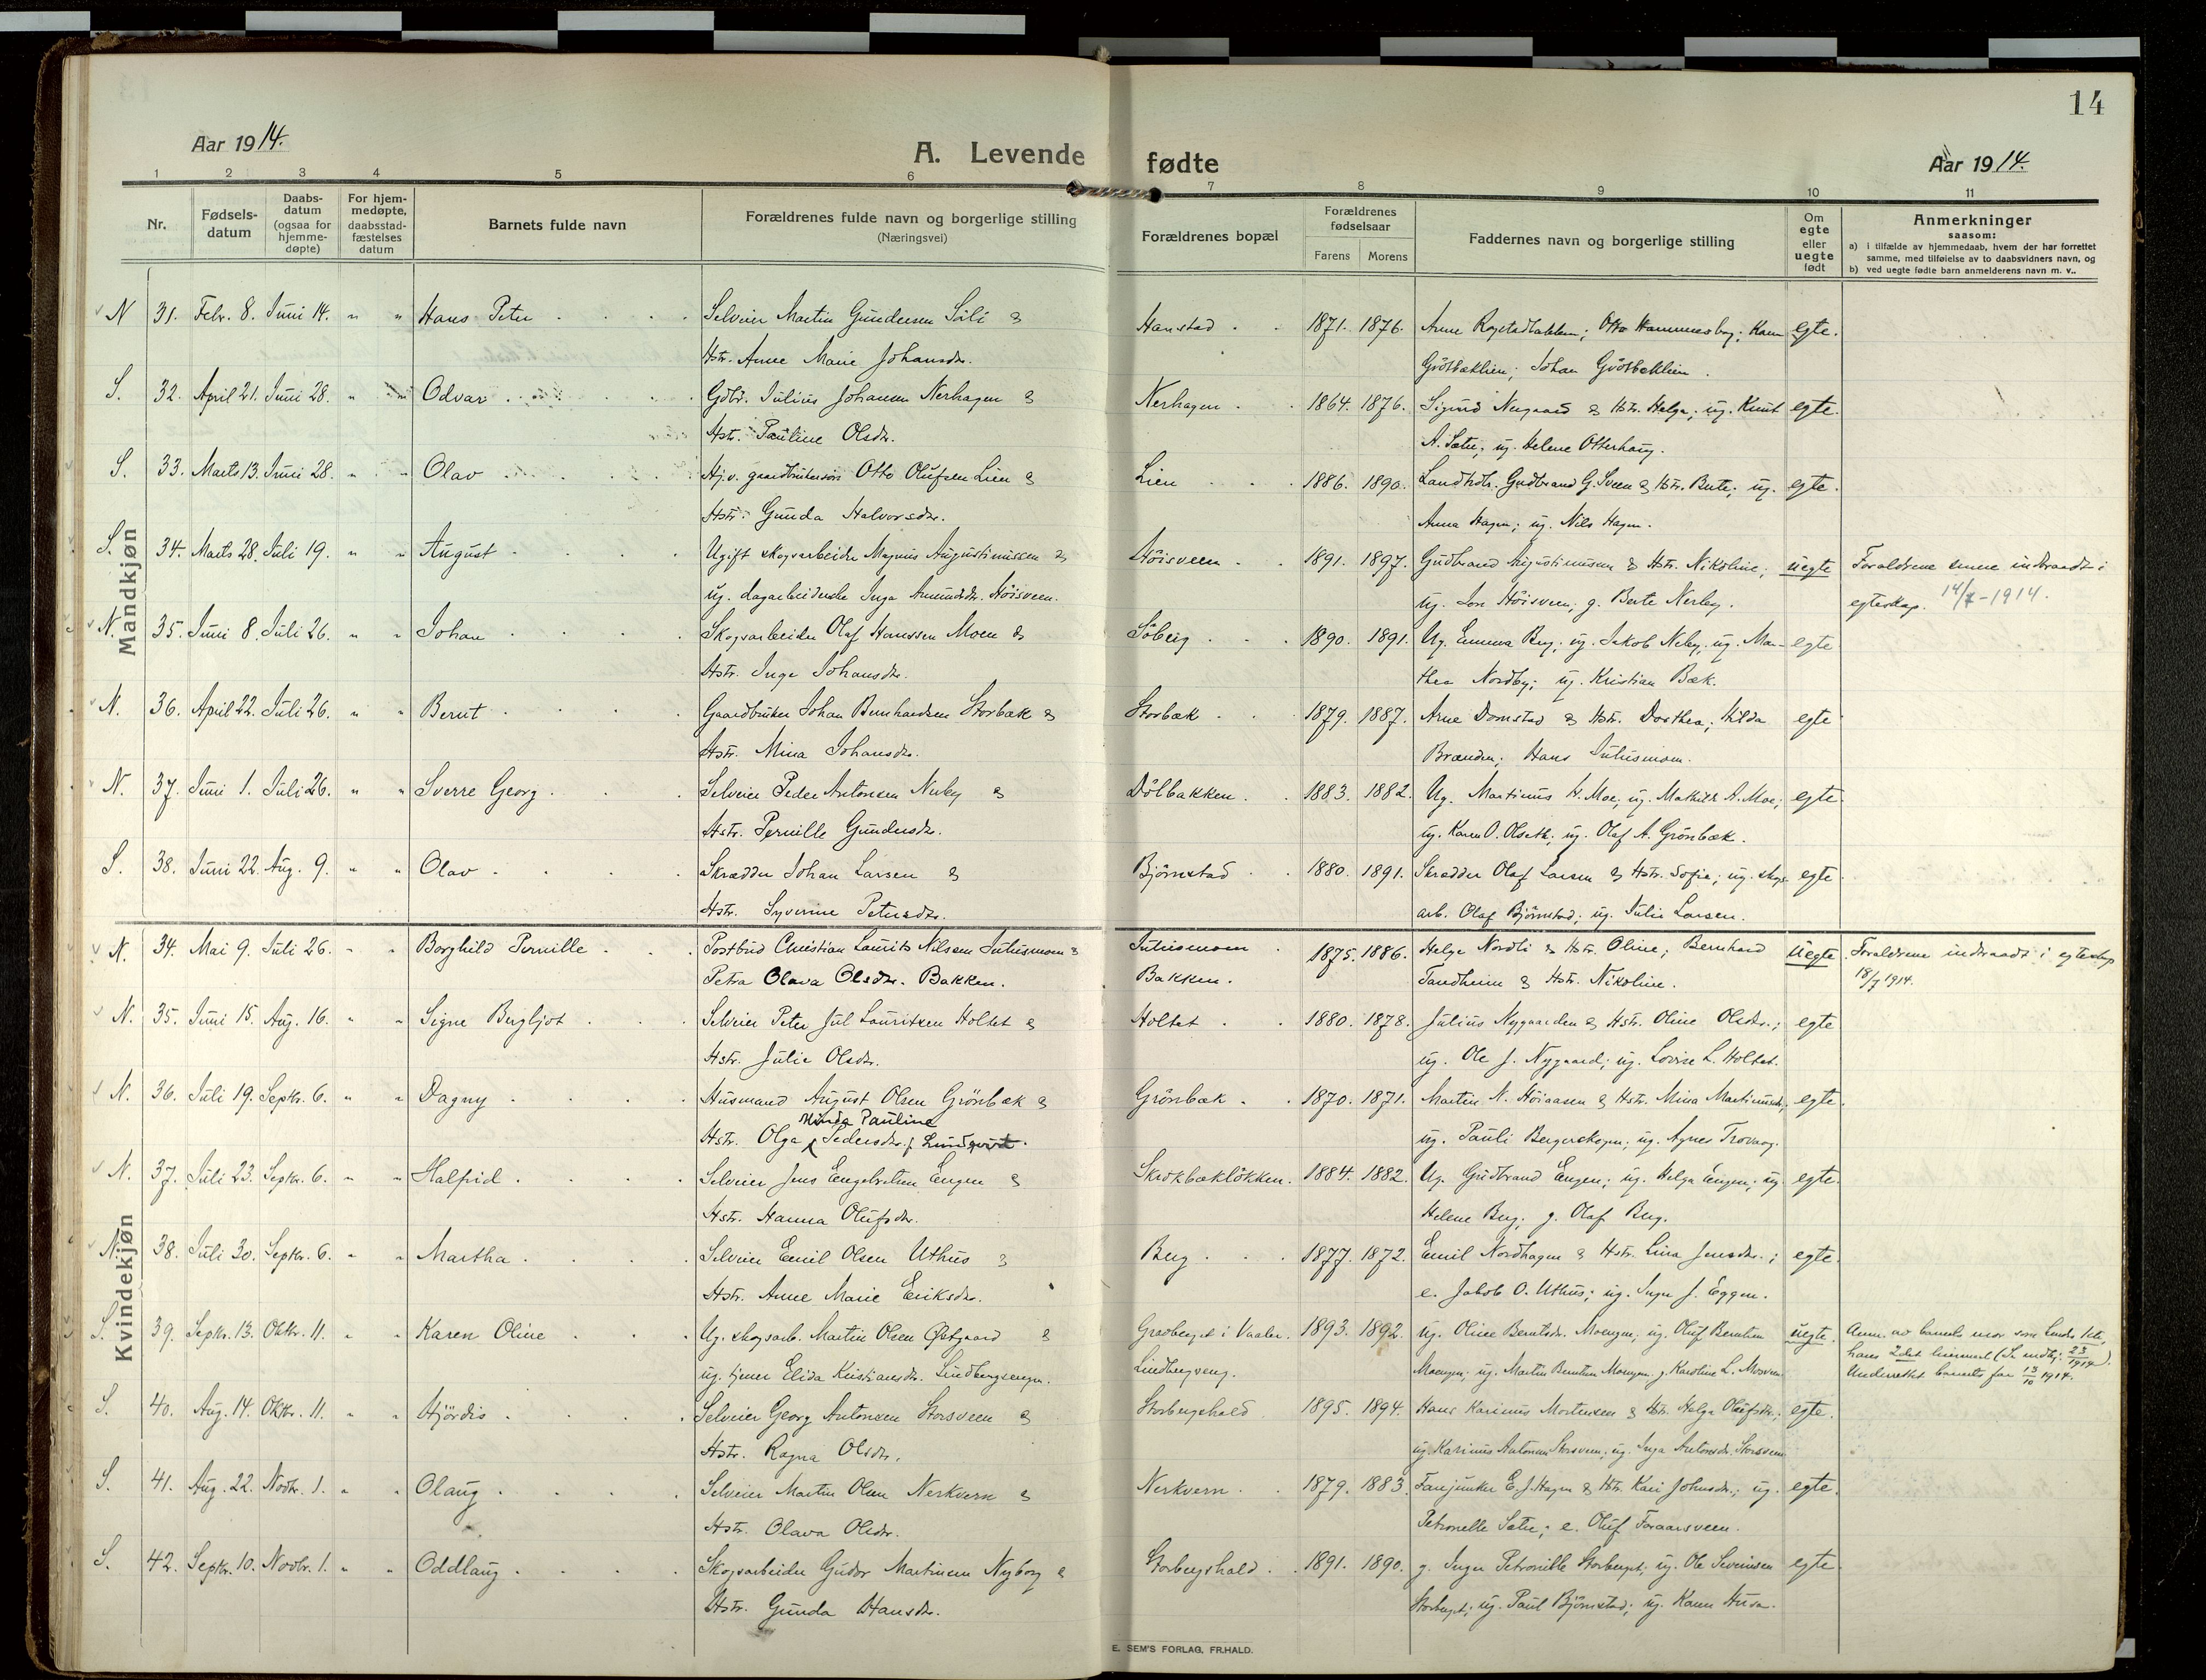 14
Aar 1914. A. Levende fødte Aar 1914.
1 2 3 4 5 6 7 8 9 10 11
Nr. Fødsels-datum Daabs-datum (ogsaa for hjemme-døpte) For hjem-medøpte, daabsstad-fæstelses datum Barnets fulde navn Forældrenes fulde navn og borgerlige stilling (Næringsvei) Forældrenes bopæl Forældrenes fødselsaar Farens Morens Faddernes navn og borgerlige stilling Om egte eller uegte født Anmerkninger saasom:
a) i tilfælde av hjemmedaab, hvem der har forrettet samme, med tilføielse av to daabsvidners navn, og
b) ved uegte fødte barn anmelderens navn m. v..
Mandkjøn
N 31. Febr. 8. Juni 14. " " Hans Peter Selveier Martin Gundersen Söli & Hanstad 1871. 1876. Otto Hammersbog; Karen egte.
Hstr. Anne Marie Johansdr. Johan
S. 32. April 21. Juni 28. " " Odvar Gdbr. Julius Johansen Nerhagen & Nerhagen 1864. 1876. Sigurd Nergaard & Hstr. Helga; ug. Knut egte.
Hstr. Pauline Olsdr. A. Sætre; ug. Helene Otterhaug.
S. 33. Marts 13. Juni 28. " " Olav Hj.v. gaardbrukersön Otto Olufsen Lien & Lien 1886. 1890. Landhdlr. Gudbrand G. Sveen & Hstr. Berte; ug. egte.
Hstr. Gunda Halvorsdr. Anna Hagen; ug. Nils Hagen.
S. 34. Marts 28. Juli 19. " " August Ugift skogsarbeider Magnus Augustinussen & Höisveen 1891. 1897. Gudbrand Augustinussen & Hstr. Nikoline; uegte Forældrene senere indtraadt i
ug. dagarbeiderske Inga Amundsdr. Höisveen. ug. Jon Höisveen; g. Berte Nerby. egteskap. 14/7-1914.
N. 35. Juni 8. Juli 26. " " Johan Skogsarbeider Olaf Hanssen Moen & Söberg 1890. 1891. Ug. Emma Berg; ug. Jakob Neby; ug. Mar- egte
Hstr. Inga Johansdr. thea Nordby; ug. Kristian Bæk.
N. 36. April 22. Juli 26. " " Bernt Gaardbruker Johan Bernhardsen Storbæk & Storbæk 1879. 1887. Arne Domstad & Hstr. Dorthea; Hilda egte
Hstr. Mina Johansdr. Brænden; Hans Juliusmoen.
N. 37. Juni 1. Juli 26. " " Sverre Georg Selveier Peder Antonsen Nerby & Dölbakken 1883. 1882. Ug. Martinus H. Moe; ug. Mathilde A. Moe; egte.
Hstr. Pernille Gundersdr. ug. Karen O. Olseth; ug. Olaf A. Grönbæk.
S. 38. Juni 22. Aug. 9. " " Olav Skrædder Johan Larsen & Björnstad 1880. 1891. Skrædder Olaf Larsen & Hstr. Sofie; ug. skogs- egte
Hstr. Syverine Petersdr. arb. Olaf Björnstad; ug. Julie Larsen.
Kvindekjøn
N. 34. Mai 9. Juli 26. " " Borghild Pernille Postbud Christian Laurits Nilsen Juliusmoen & Juliusmoen 1875. 1886. Helge Nordli & Hstr. Oline; Bernhard uegte. Forældrene indtraadt i egteskap
Petra Olava Olsdr. Bakken. Bakken. Tandheim & Hstr. Nikoline. 18/7 1914.
N. 35. Juni 15. Aug. 16. " " Signe Bergljot Selveier Peter Jul Lauritzen Holtet & Holtet 1880. 1878. Julius Nygaarden & Hstr. Oline Olsdr.; egte
Hstr. Julie Olsdr. ug. Ole J. Nygaard; ug. Lovise L. Holtet.
N. 36. Juli 19. Septr. 6. " " Dagny Husmand August Olsen Grönbæk & Grönbæk 1870. 1871. Martin N. Höiaasen & Hstr. Mina Martinusdr.; egte.
Minda Pauline
Hstr. Olga Pedersdr. f. Lundqvist. ug. Pauli Bergerskogen; ug. Agnes
N. 37. Juli 23. Septr. 6. " " Halfrid Selveier Jens Engebretsen Engen & Skrökbæklökken. 1884. 1882. Ug. Gudbrand Engen; ug. Helga Engen; ug. egte.
Hstr. Hanna Olufsdr. Helene Berg; g. Olaf Berg.
N. 38. Juli 30. Septr. 6. " " Martha Selveier Emil Olsen Uthus & Berg 1877. 1872. Emil Nordhagen & Hstr. Lina Jensdr.; egte.
Hstr. Anne Marie Eriksdr. e. Jakob O. Uthus; ug. Inga J. Eggen.
S. 39. Septr. 13. Oktr. 11. " " Karen Oline Ug. skogsarb. Martin Olsen Østgaard & Gravberget i Vaaler. 1893. 1892. ug. Oline Berntsdr. Moengen; ug. Oluf Berntsen uegte. Anm. av barnets mor som hendes 1ste,
ug. tjener Elida Kristiansdr. Lindbergsengen. Lindbergseng. Moengen; ug. Martin Berntsen Moengen; g. Karoline L. Mosveen hans 2det leiermaal
Underrettet barnets far 13/10 1914.
S. 40. Aug. 14. Oktr. 11. " " Hjördis Selveier Georg Antonsen Storsveen & Storbergshald 1895. 1894. Hans Karinus Mortensen & Hstr. Helga Olufsdr.; egte.
Hstr. Ragna Olsdr. ug. Karinus Antonsen Storsveen; ug. Inga Antonsdr. Storsveen
S. 41. Aug. 22. Novbr. 1. " " Olaug Selveier Martin Olsen Nerkvern & Nerkvern 1879. 1883. Fanejunker E. J. Hagen & Hstr. Kari Johnsdr.; ug. egte.
Hstr. Olava Olsdr. Petronelle Sætre; e. Oluf Foraarsveen.
S. 42. Septr. 10. Novbr. 1. " " Oddlaug Skogsarbeider Gudor Martinsen Nyborg & Storbergshald 1891. 1890. g. Inger Petronille Storberget; ug. Ole Severinsen egte.
Hstr. Gunda Hansdr. Storberget; ug. Paul Björnstad; ug. Karen
E. SEM'S FORLAG, FR.HALD.